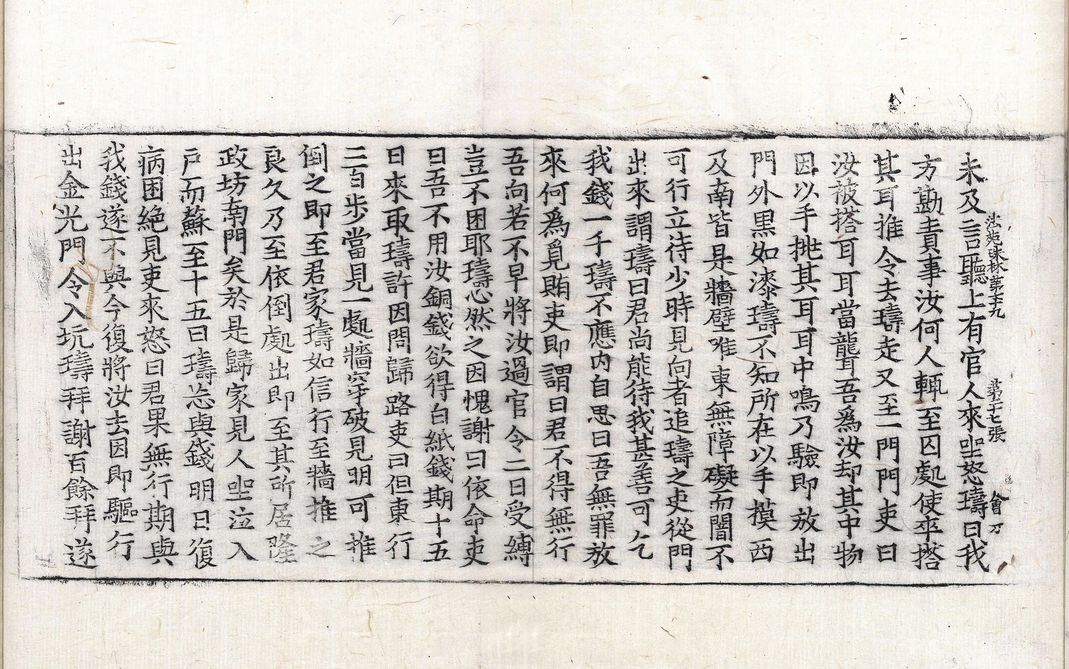 未及言聽上有官人來坐怒璹曰我
法苑珠林第七十九 第二十七張 會
方勘責事汝何人輒至囚處使卒搭
其耳推令去璹走又至一門門吏曰
汝被搭耳耳當聾吾爲汝却其中物
因以手挑其耳耳中鳴乃驗即放出
門外黑如漆璹不知所在以手摸西
及南皆是牆壁唯東無障礙而闇不
可行立待少時見向者追璹之吏從門
出來謂璹曰君尚能待我甚善可乞
我錢一千璹不應内自思曰吾無罪放
來何爲覓賄吏即謂曰君不得無行
吾向若不早將汝過官令二日受縛
豈不困耶璹心然之因愧謝曰依命吏
曰吾不用汝銅錢欲得白紙錢期十五
日來取璹許因問歸路吏曰但東行
二百步當見一處牆穿破見明可推
倒之即至君家璹如信行至牆推之
良久乃至依倒處出即至其所居隆
政坊南門矣於是歸家見人坐泣入
戶而蘇至十五日璹忘與錢明日復
病困絕見吏來怒曰君果無行期與
我錢遂不與今復將汝去因即驅行
出金光門令入坑璹拜謝百餘拜遂